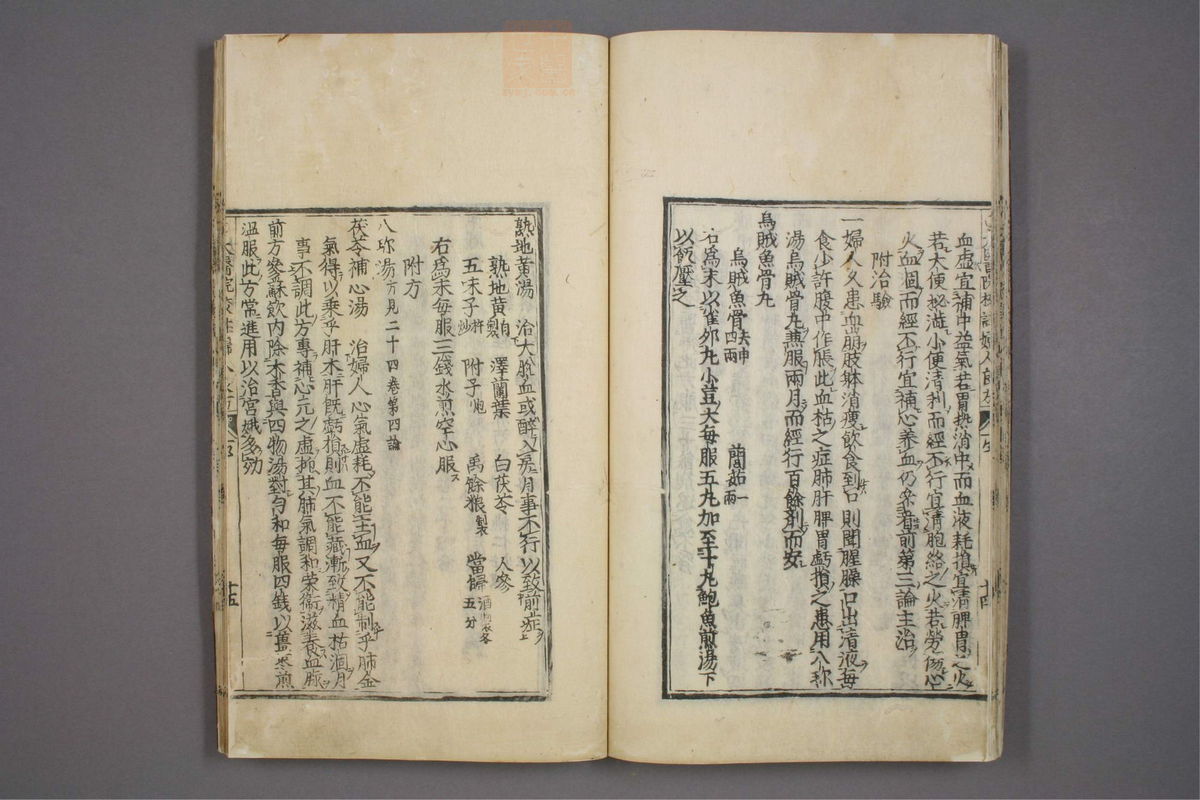 血虛宜補中益氣若胃熱消中而血液耗損宜清脾胃之火
若大便秘澁小便清利而經不行宜清胞絡之火若勞傷心
火血涸而經不行宜補心養血仍參看前第三論主治
附治驗
一婦人久患血崩肢躰消瘦飲食到口則聞腥臊口出清液每
食少許腹中作脹此血枯之症肺肝脾胃虧損之患用八珎
湯烏賊骨丸兼服兩月而經行百餘劑而安
烏賊魚骨丸
烏賊魚骨去甲四兩 藘茹一兩
右爲末以雀夘丸小豆大每服五丸加至十丸鮑魚煎湯下
以飯壓之
十四
熟地黃湯 治大脫血或醉入房月事不行以致前症
熟地黃自製 澤蘭葉 白茯苓 人參
五味子杵炒 附子炮 禹餘粮製 當歸酒製各五分
右爲末每服三錢水煎空心服
八珎湯方見二十四卷第四論
附方
茯苓補心湯 治婦人心氣虛耗不能主血又不能制乎肺金
氣得以乘乎肝木肝既虧損則血不能藏漸致精血枯涸月
事不調此方專補心元之虛撫其肺氣調和榮衛滋養血脈
前方參蘇飲內除木香與四物湯對勻和每服四錢以薑棗煎
溫服此方常進用以治宮娥多効
十五